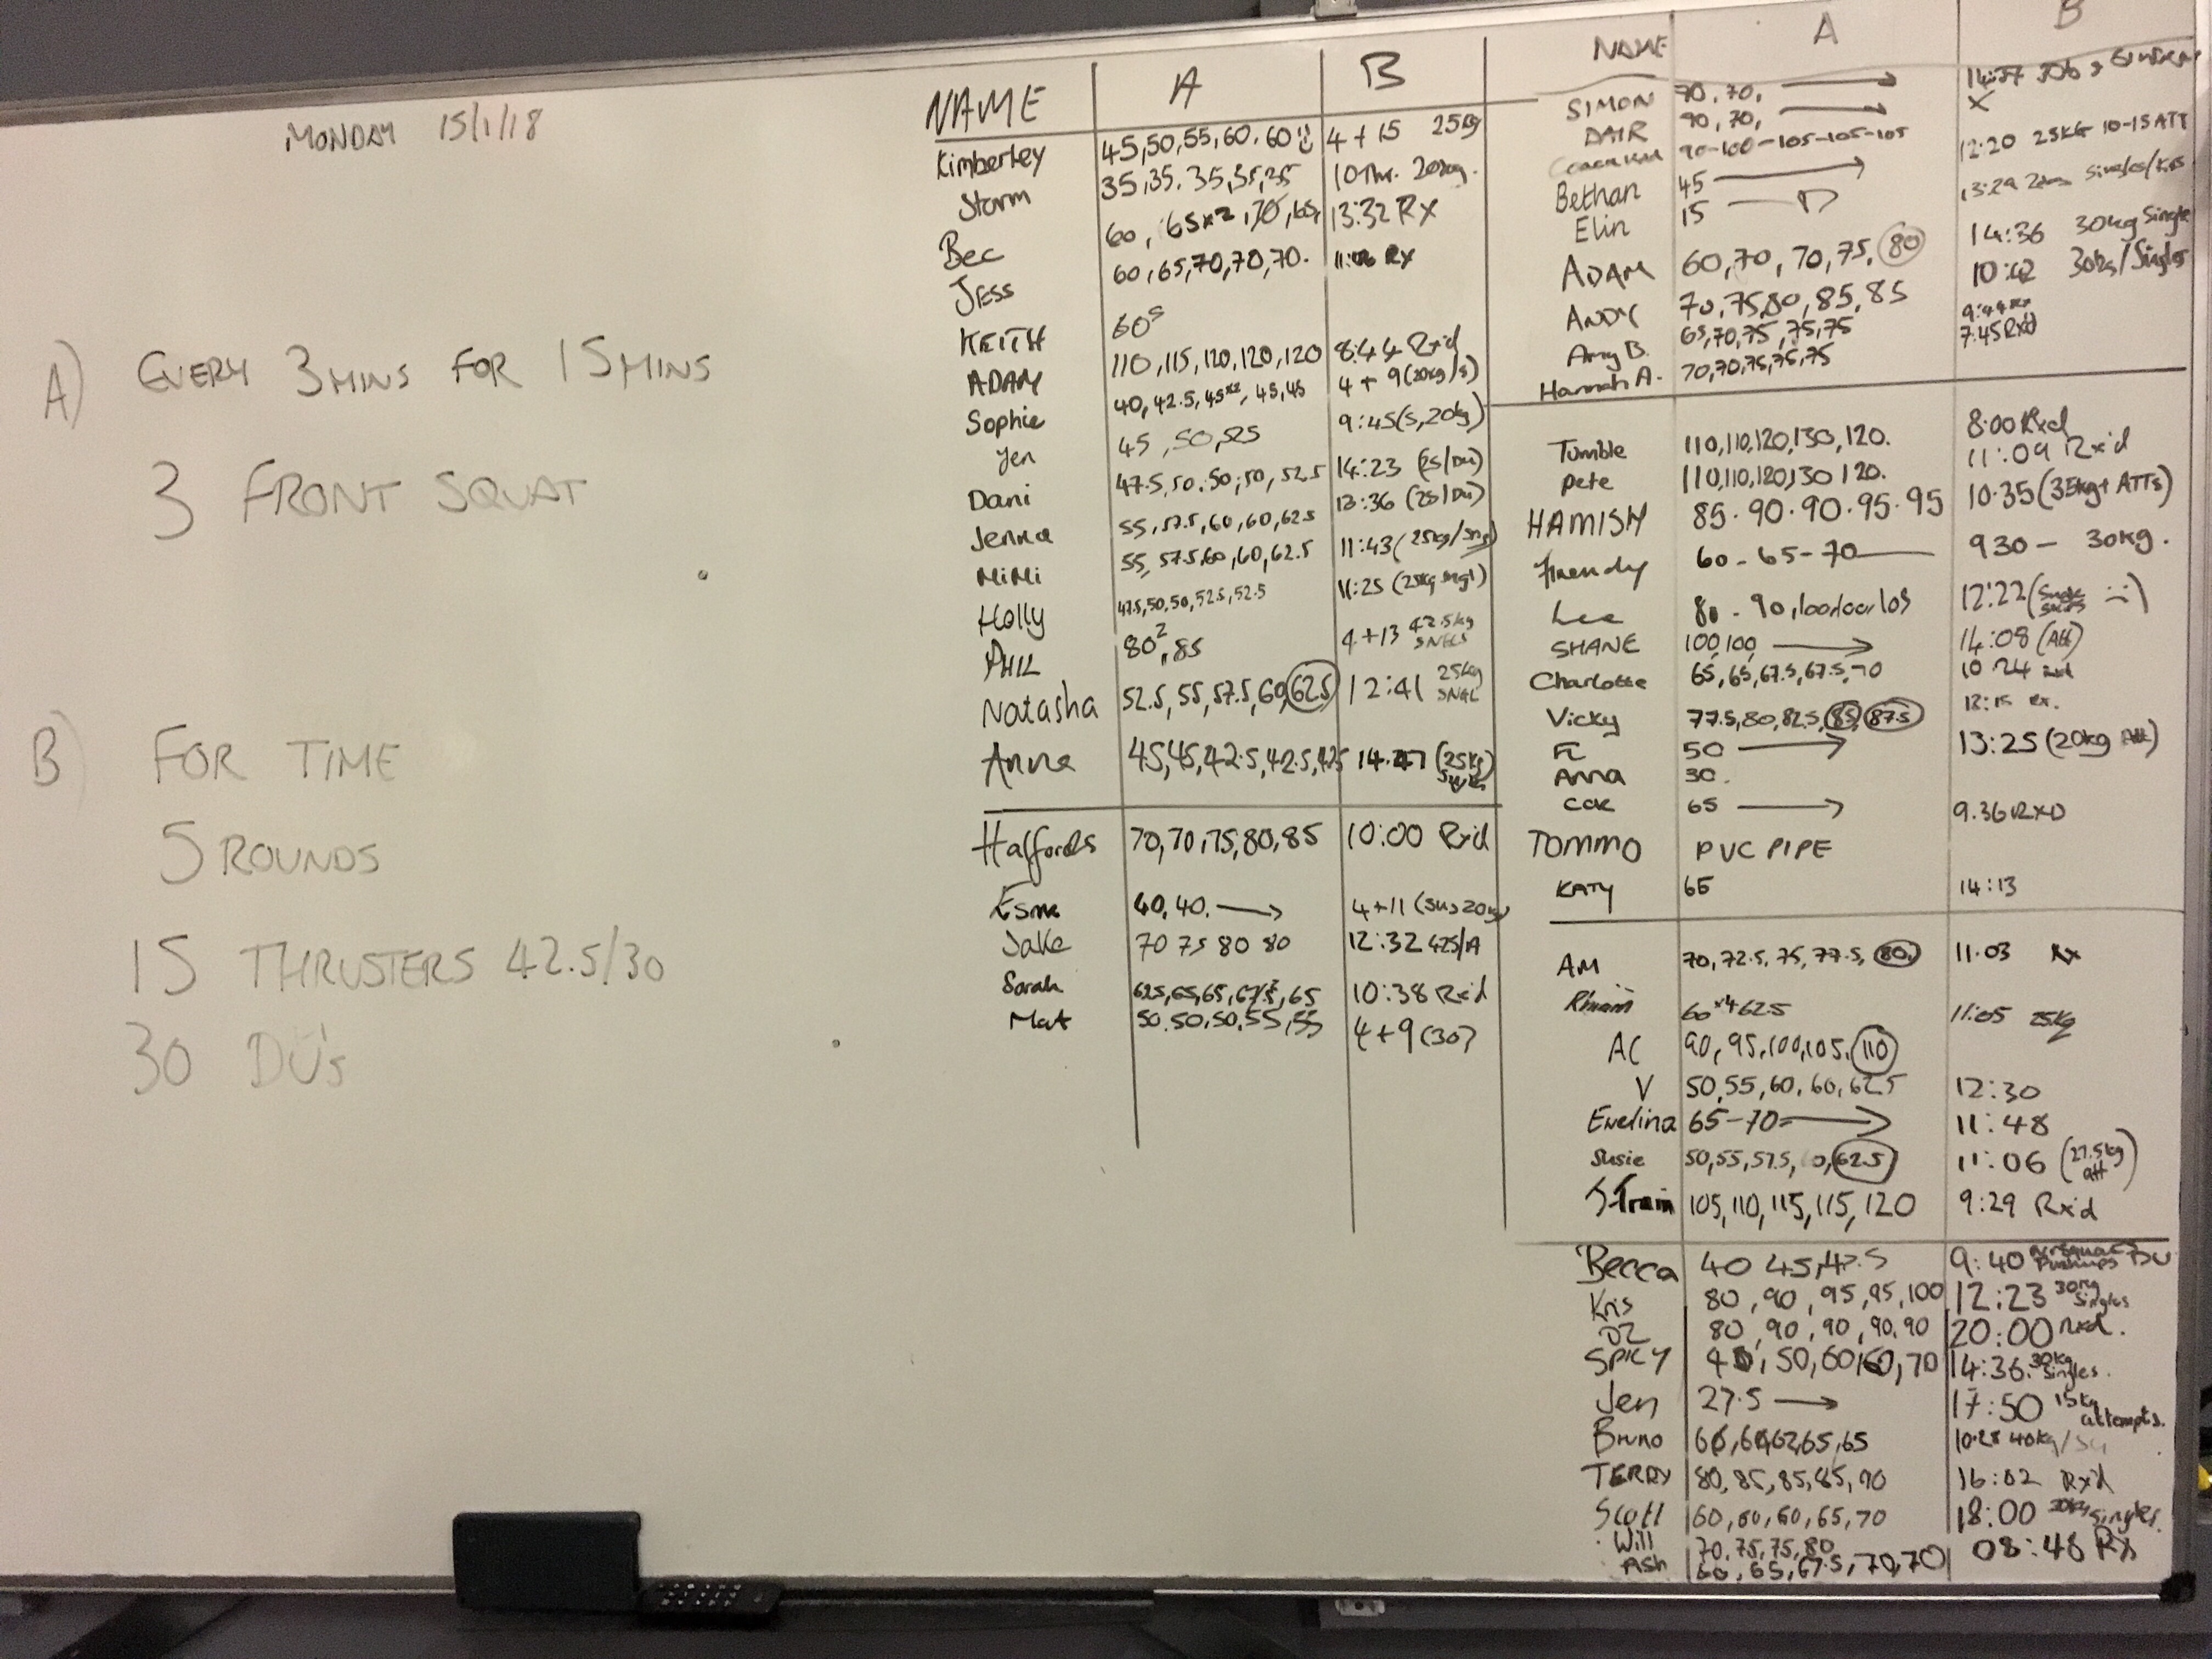 MONDAY 15/1/18
A) EVERY 3 MINS FOR 15 MINS
3 FRONT SQUAT
B) FOR TIME
5 ROUNDS
15 THRUSTERS 42.5/30
30 DU's
NAME A B
Kimberley 45,50,55,60,60 4+15 25kg
Storm 35,35,35,35,35 10 Thr. 20kg.
Bec 60, 65x2, 70, 65, 13:32 Rx
Jess 60,65,70,70,70. Rx
KEITH 60s
ADAM 110,115,120,120,120 8:44 Rx'd
Sophie 40,42.5,45x2,45,45 4+9(20kg/s)
Jen 45,50,525 9:45(s,20kg)
Dani 47.5,50,50,50,52.5 14:23 (25/DU)
Jenna 55,57.5,60,60,62.5 13:36 (25/DU)
MiMi 55,57.5,60,60,62.5 11:43(25kg/sngl)
Holly 47.5,50,50,52.5,52.5 11:25 (25kg sngl)
PHIL 80²,85 4+13 42.5kg SNGLS
Natasha 52.5,55,57.5,60,62.5 12:41 25kg SNGL
Anna 45,45,42.5,42.5,42.5 (25kg
Halfords 70,70,75,80,85 10:00 Rx'd
Esme 40,40. → 4+11 20kg)
Jake 70 75 80 80 12:32 425/A
Sarah 62.5,65,65,67.5,65 10:38 Rx'd
Mat 50.50,50,55,55 4+9(30)
NAME A B
SIMON 70,70, →
DAIR 90,70, → X
90-100-105-105-105 12:20 25KG 10-15 ATT
Bethan 45 → 13:29 singles
Elin 15 →
ADAM 60,70,70,75,80 14:36 30kg Single
ANDY 70,75,80,85,85 10:42 30kg/Singles
Amy B. 65,70,75,75,75 9:44 Rx
Hannah A. 70,70,75,75,75 7.45 Rxd
Tumble 110,110,120,130,120. 8:00 Rxd
Pete 110,110,120,130 120. 11:09 Rx'd
HAMISH 85.90.90.95.95 10:35(35kg+ATTs)
60-65-70 930 - 30kg.
Lee 80-90,100,100,105 12:22
SHANE 100,100, → 14:08 (Att)
Charlotte 65,65,67.5,67.5,70 10 24
Vicky 77.5,80,82.5,85,87.5 13:15 Rx.
FC 50 → 13:25(20kg Att)
Anna 30.
COK 65 → 9.36 RXD
TOMMO PVC PIPE
KATY 65 14:13
AM 70,72.5,75,77.5,80, 11.03 Rx
60x4 62.5 11:05 25kg
AC 90,95,100,105,110
V 50,55,60,60,62.5 12:30
Evelina 65-70 → 11:48
Susie 50,55,57.5, 62.5 11:06 (27.5kg att)
J-Train 105,110,115,115,120 9:29 Rx'd
Becca 40 45, 9:40 Airsquats Pushups DU
Kris 80,90,95,95,100 12:23 30kg Singles
OZ 80,90,90,90,90 20:00 Rxd.
SPICY 50,60,60,70 14:36 30kg singles.
Jen 27.5 → 17:50 15kg attempts.
Bruno 65,65 10:28 40kg/
TERRY 80,85,85,85,90 16:02 Rx'd
Scott 60,60,60,65,70 18:00 singles.
Will 70,75,75,80 08:48 Rx
Ash 60,65,67.5,70,70